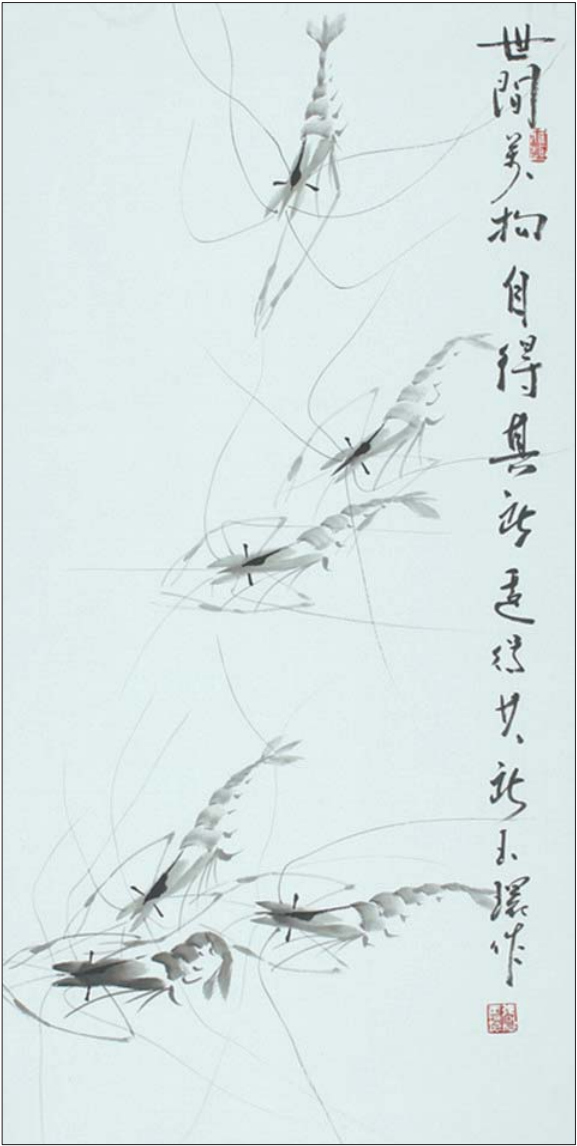 世間萬物自得其所適得其所玉環作